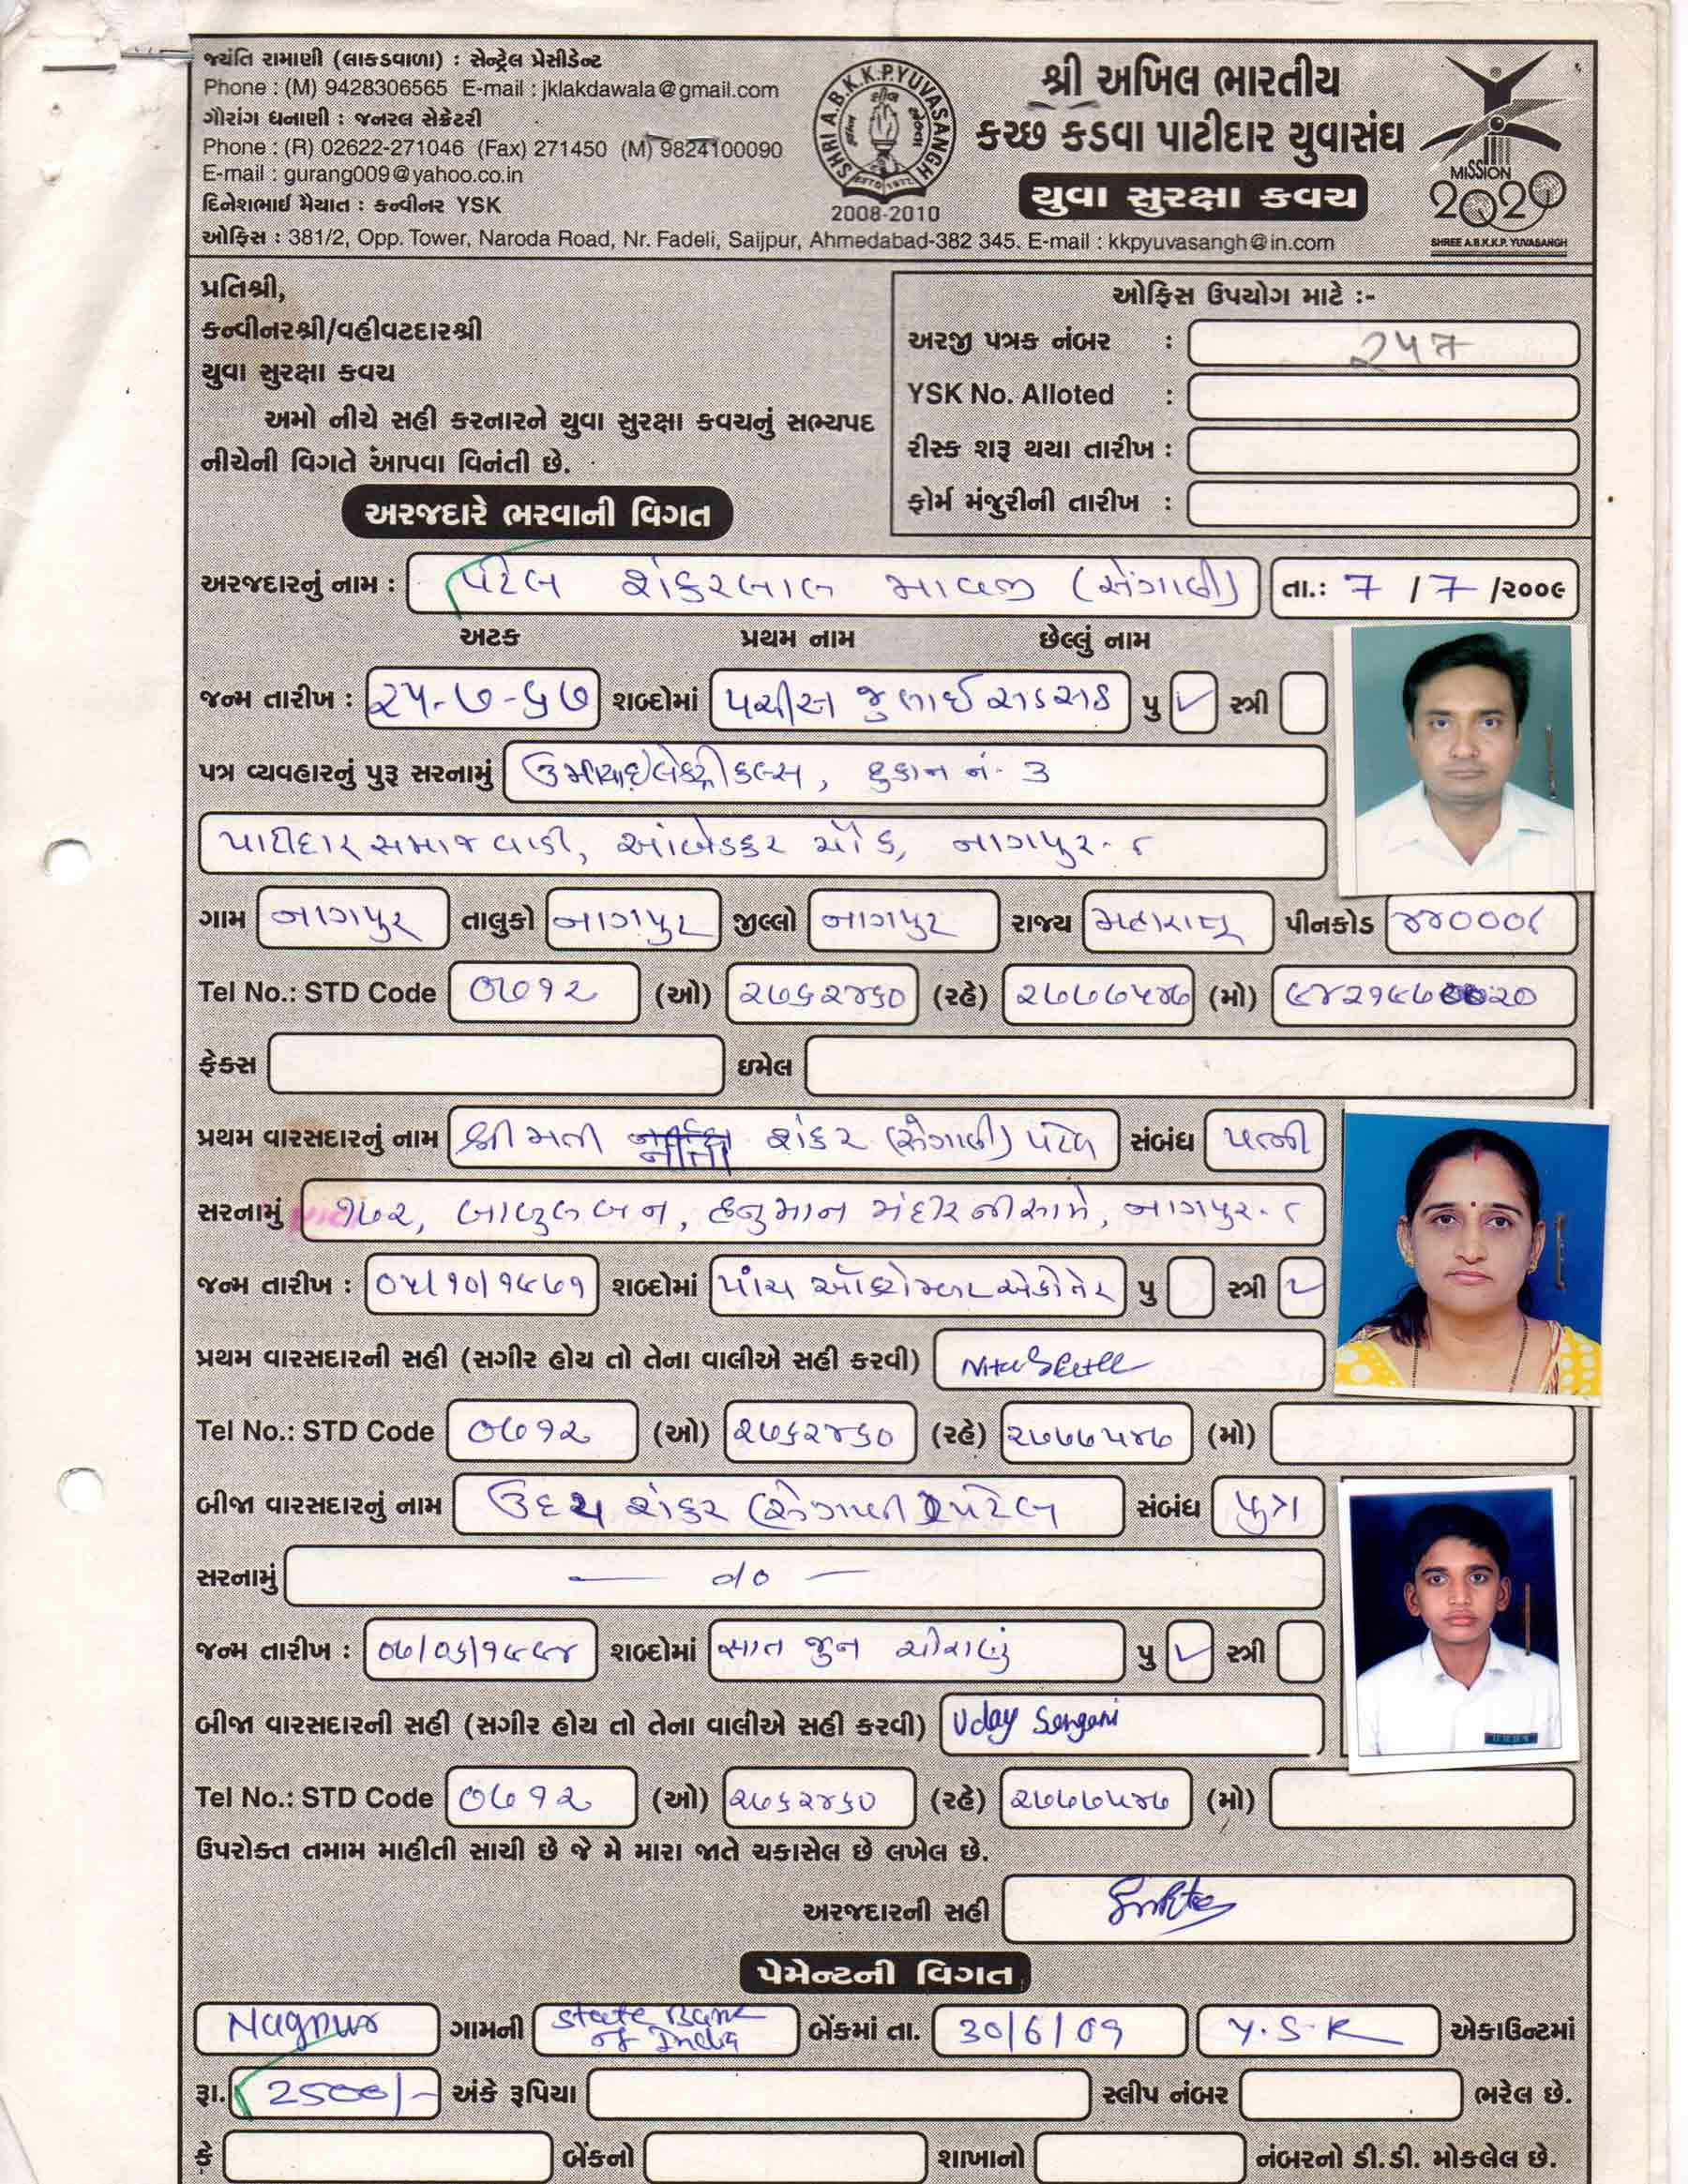 જયંતિ રામાણી (લાકડાવાળા) : સેન્ટ્રલ પ્રેસીડેન્ટ
Phone : (M) 9428306565 E-mail : jklakdawala@gmail.com
ગૌરાંગ ધનાણી : જનરલ સેક્રેટરી
Phone : (R) 02622-271046 (Fax) 271450 (M) 9824100090
E-mail : gurang009@yahoo.co.in
દિનેશભાઈ મૈયાત : કન્વીનર YSK
SHRI A.B.K.K.P.YUVASANGH
2008-2010
શ્રી અખિલ ભારતીય
કચ્છ કડવા પાટીદાર યુવાસંઘ
યુવા સુરક્ષા કવચ
MISSION
2020
SHREE A.B.K.K.P. YUVASANGH
ઓફિસ : 381/2, Opp. Tower, Naroda Road, Nr. Fadeli, Saijpur, Ahmedabad-382 345. E-mail : kkpyuvasangh@in.com
પ્રતિશ્રી,
કન્વીનરશ્રી/વહીવટદારશ્રી
યુવા સુરક્ષા કવચ
અમો નીચે સહી કરનારને યુવા સુરક્ષા કવચનું સભ્યપદ
નીચેની વિગતે આપવા વિનંતી છે.
ઓફિસ ઉપયોગ માટે :-
અરજી પત્રક નંબર : ૨૫૭
YSK No. Alloted :
રીસ્ક શરૂ થયા તારીખ :
ફોર્મ મંજુરીની તારીખ :
અરજદારે ભરવાની વિગત
અરજદારનું નામ : પટેલ શંકરલાલ માવજી (સેંગાણી) તા.: 7 / 7 /૨૦૦૯
અટક પ્રથમ નામ છેલ્લું નામ
જન્મ તારીખ : ૨૫-૭-૬૭ શબ્દોમાં પચીસ જુલાઈ સડસઠ પુ ✓ સ્ત્રી
પત્ર વ્યવહારનું પુરૂ સરનામું ઉમીયા ઈલેક્ટ્રીકલ્સ, દુકાન નં- ૩
પાટીદાર સમાજ વાડી, આંબેડકર ચૉક, નાગપુર-૮
ગામ નાગપુર તાલુકો નાગપુર જીલ્લો નાગપુર રાજ્ય મહારાષ્ટ્ર પીનકોડ ૪૪૦૦૦૮
Tel No.: STD Code ૦૭૧૨ (ઓ) ૨૭૬૨૪૬૦ (રહે) ૨૭૭૭૫૪૭ (મો)
ફેક્સ ઇમેલ
પ્રથમ વારસદારનું નામ શ્રીમતી નીતા શંકર (સેંગાણી) પટેલ સંબંધ પત્ની
સરનામું ૧૭૨, બાબુલબન, હનુમાન મંદીર ની સામે, નાગપુર-૮
જન્મ તારીખ : ૦૫/૧૦/૧૯૭૧ શબ્દોમાં પાંચ ઑક્ટોમ્બર એકોતેર પુ સ્ત્રી ✓
પ્રથમ વારસદારની સહી (સગીર હોય તો તેના વાલીએ સહી કરવી)
Tel No.: STD Code ૦૭૧૨ (ઓ) ૨૭૬૨૪૬૦ (રહે) ૨૭૭૭૫૪૭ (મો)
બીજા વારસદારનું નામ ઉદય શંકર (સેંગાણી) પટેલ સંબંધ પુત્ર
સરનામું — do —
જન્મ તારીખ : ૦૭/૦૬/૧૯૯૪ શબ્દોમાં સાત જુન ચોરાણું પુ ✓ સ્ત્રી
બીજા વારસદારની સહી (સગીર હોય તો તેના વાલીએ સહી કરવી) Uday Sengani
Tel No.: STD Code ૦૭૧૨ (ઓ) ૨૭૬૨૪૬૦ (રહે) ૨૭૭૭૫૪૭ (મો)
ઉપરોક્ત તમામ માહીતી સાચી છે જે મે મારા જાતે ચકાસેલ છે લખેલ છે.
અરજદારની સહી
પેમેન્ટની વિગત
Nagpur ગામની State Bank of India બેંકમાં તા. 30/6/09 Y.S.K એકાઉન્ટમાં
રૂા. 2500/- અંકે રૂપિયા સ્લીપ નંબર ભરેલ છે.
કે બેંકનો શાખાનો નંબરનો ડી.ડી. મોકલેલ છે.